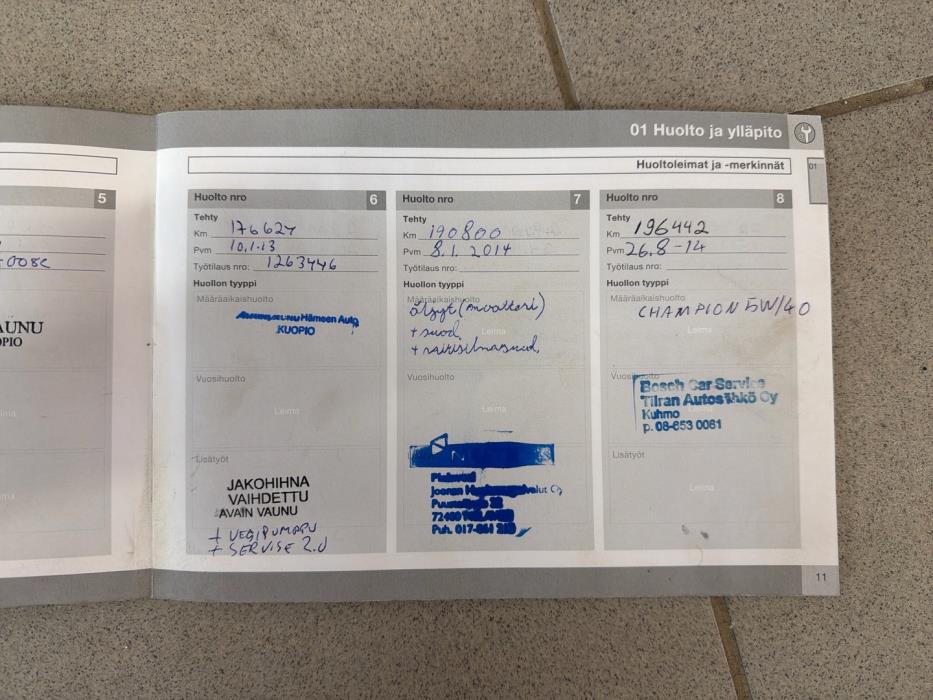 01 Huolto ja ylläpito
Huoltoleimat ja -merkinnät
01
5
008c
AUNU
OPIO
Leima
Huolto nro 6
Tehty
Km 176627
Pvm 10.1.13
Työtilaus nro: 1263446
Huollon tyyppi
Määräaikaishuolto
Hämeen Auto
KUOPIO
Vuosihuolto
Leima
Lisätyöt
JAKOHIHNA
VAIHDETTU
AVAIN VAUNU
+ VESIPUMPPU
+ SERVISE 2.0
Huolto nro 7
Tehty
Km 190800
Pvm 8.1.2014
Työtilaus nro:
Huollon tyyppi
Määräaikaishuolto
öljyt (moottori)
Leima
+ suod.
+ raitisilmasuod.
Vuosihuolto
Leima
Joonan
Puh. 017-861
Huolto nro 8
Tehty
Km 196442
Pvm 26.8-14
Työtilaus nro:
Huollon tyyppi
Määräaikaishuolto
CHAMPION 5W/40
Leima
Vuosihuolto
Bosch Car Service
Tilran Autosähkö Oy
Kuhmo
p. 08-653 0061
Lisätyöt
Leima
11